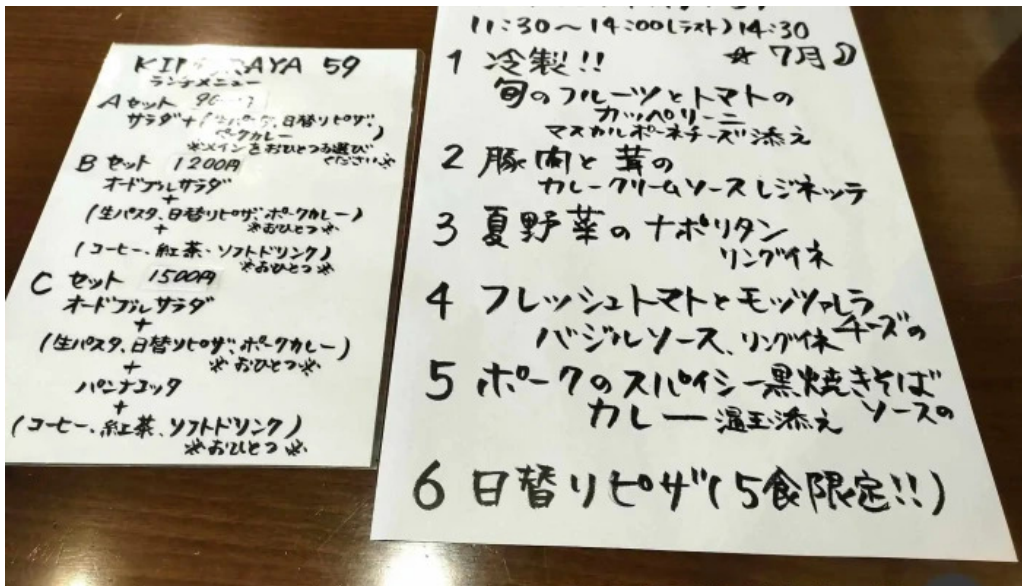 59
ランチメニュー
Aセット
サラダ+(生パスタ、日替りピザ、
ポークカレー)
※メインをおひとつお選び
ください※
Bセット 1200円
オードブルサラダ
+
(生パスタ、日替りピザ、ポークカレー)
+ ※おひとつ※
(コーヒー、紅茶、ソフトドリンク)
※おひとつ※
Cセット 1500円
オードブルサラダ
+
(生パスタ、日替りピザ、ポークカレー)
+ ※おひとつ※
パンナコッタ
+
(コーヒー、紅茶、ソフトドリンク)
※おひとつ※
11:30〜14:00(ラスト)14:30
☆7月
1 冷製!!
旬のフルーツとトマトの
カッペリーニ
マスカルポーネチーズ添え
2 豚肉と茸の
カレークリームソースレジネッテ
3 夏野菜のナポリタン
リングイネ
4 フレッシュトマトとモッツァレラ
チーズの
バジルソース、リングイネ
5 ポークのスパイシー黒焼きそば
ソースの
カレー 温玉添え
6 日替りピザ(5食限定!!)